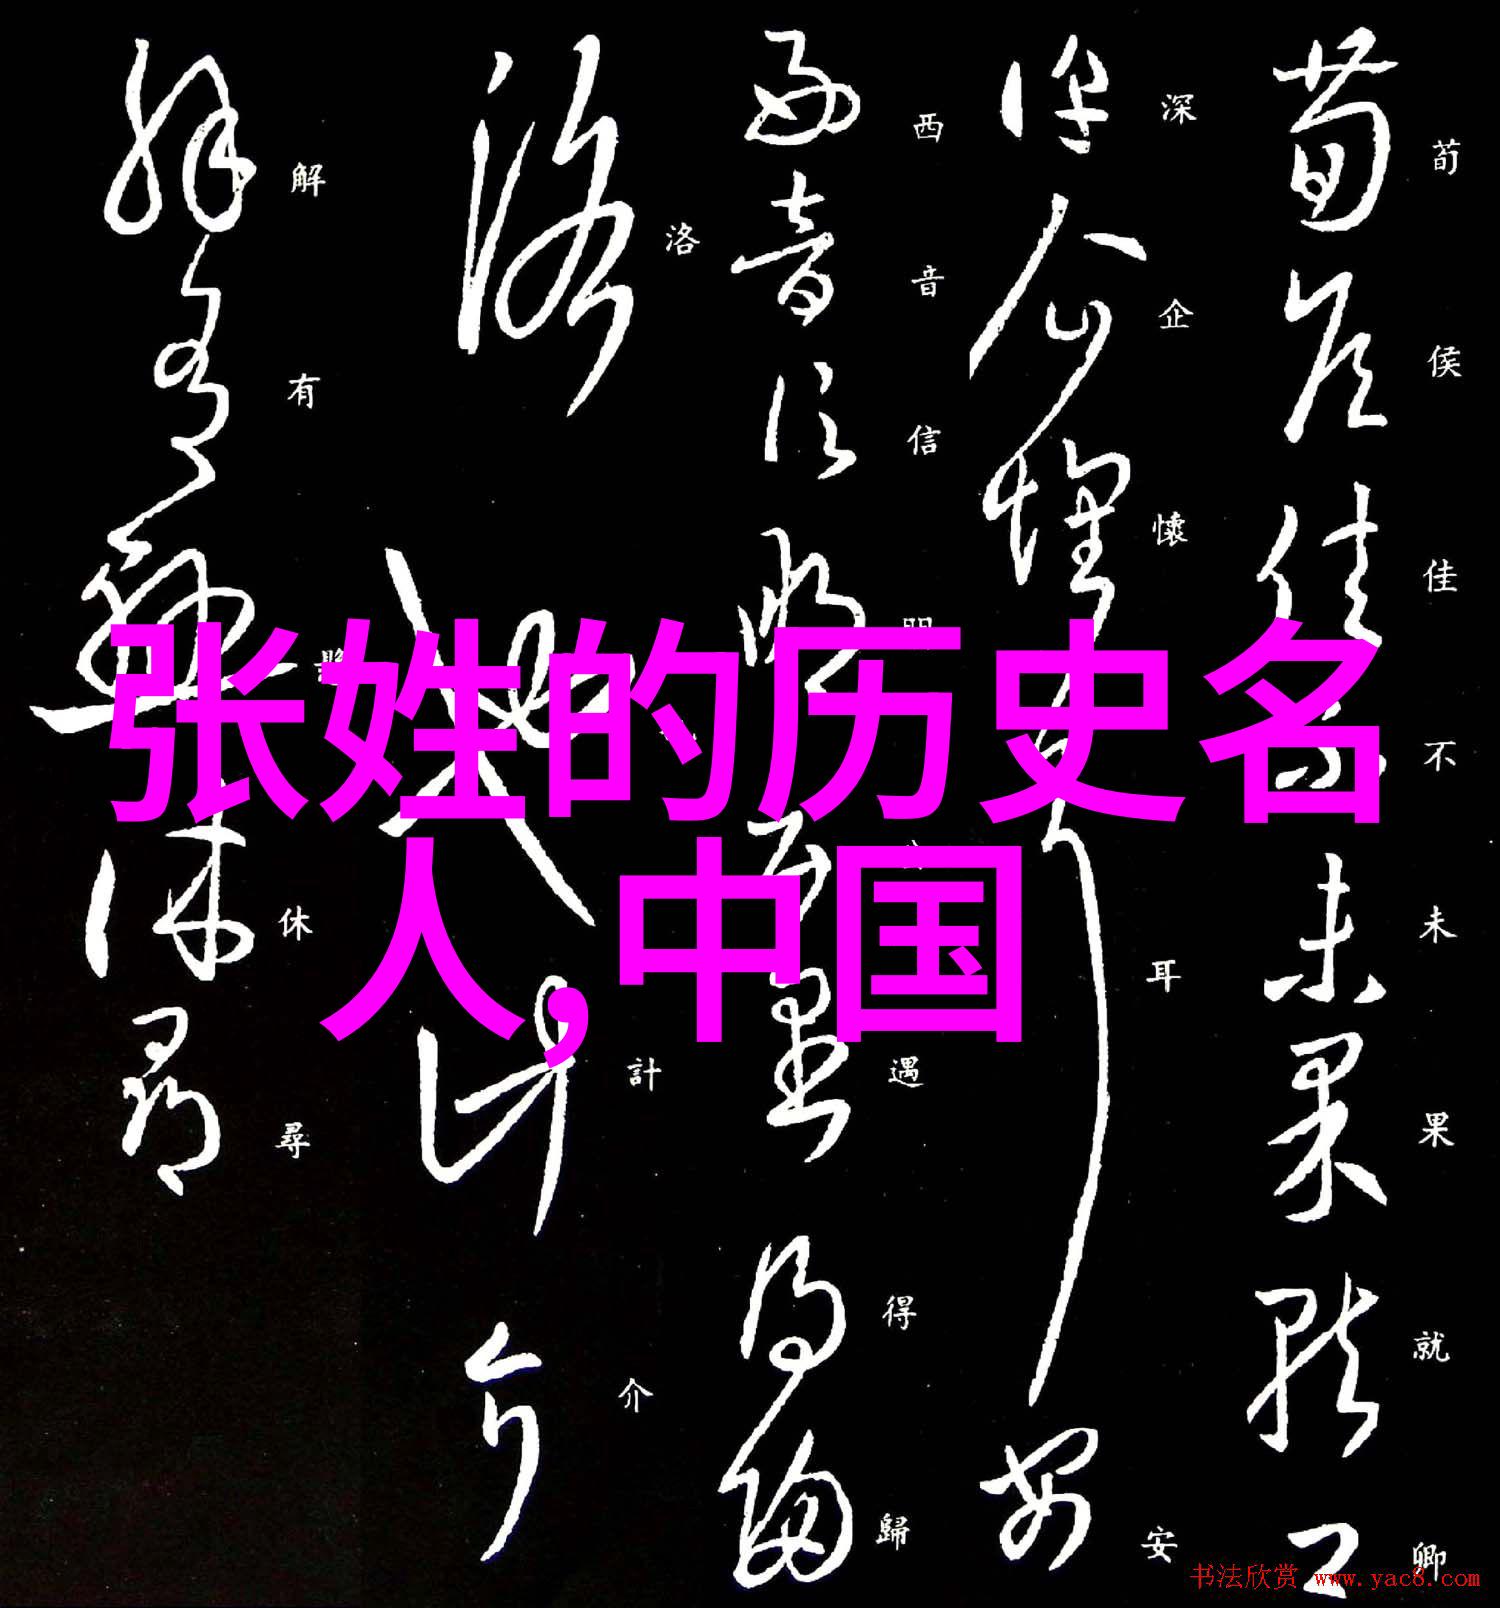 张姓的历史名
人,中国
荀侯佳不未果就卿
深企懷耳安
西音信遇得歸
洛計介
解有休尋
书法欣赏 www.yac8.com